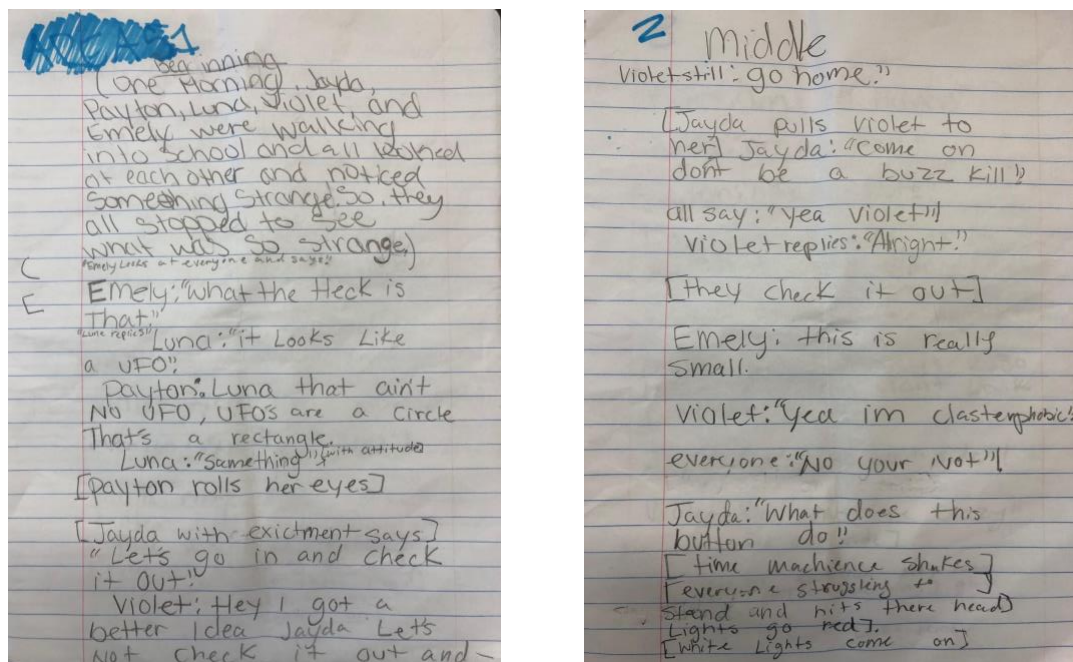 beginning
(One Morning), Jayda,
Payton, Luna, Violet, and
Emely were walking
into school and all looked
at each other and noticed
something strange. So, they
all stopped to see
what was so strange.)
"Emely Looks at everyone and says"
C
E
Emely: "what the Heck is
That."
"Luna replies"
Luna: "it Looks Like
a UFO"
Payton: Luna that ain't
No UFO, UFO's are a circle
That's a rectangle.
Luna: "Samething" (with attitude)
[Payton rolls her eyes]
[Jayda with exictment says]
"Let's go in and check
it out!"
Violet: Hey I got a
better Idea Jayda Let's
Not check it out and-
2
Middle
Violet still: go home."
[Jayda pulls violet to
her] Jayda: "Come on
don't be a buzz kill"
all say: "yea violet"!
Violet replies: "Alright."
[they check it out]
Emely: this is really
small.
Violet: "Yea im clasterphobic"
everyone: "No your Not"!
Jayda: "What does this
button do"
[time machience shakes]
[everyone struggling to
stand and hits there head]
Lights go red].
[white Lights come on]